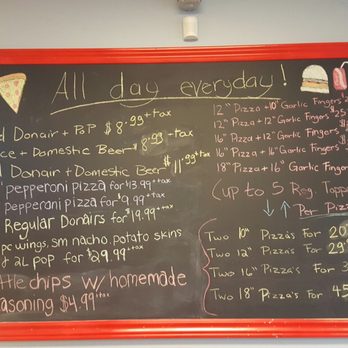 All day everyday!
Donair + PoP $8.99 +tax
+ Domestic Beer $8.99 +tax
Donair + Domestic Beer $11.99 +tax
pepperoni pizza for $13.99 +tax
pepperoni pizza for $9.99 +tax
Regular Donairs for $19.99 +tax
pc wings, sm nacho, potato skins
pop for $29.99 +tax
chips w/ homemade
$4.99 +tax
12" Pizza + 10" Garlic Fingers
12" Pizza + 12" Garlic Fingers $25
16" Pizza + 12" Garlic Fingers
16" Pizza + 16" Garlic Fingers
18" Pizza + 16" Garlic Fingers
(up to 5 Reg. Topp
↓ ↑ Per Piz
Two 10" Pizza's For 20
Two 12" Pizza's For
Two 16" Pizza's For 3
Two 18" Pizza's For 45